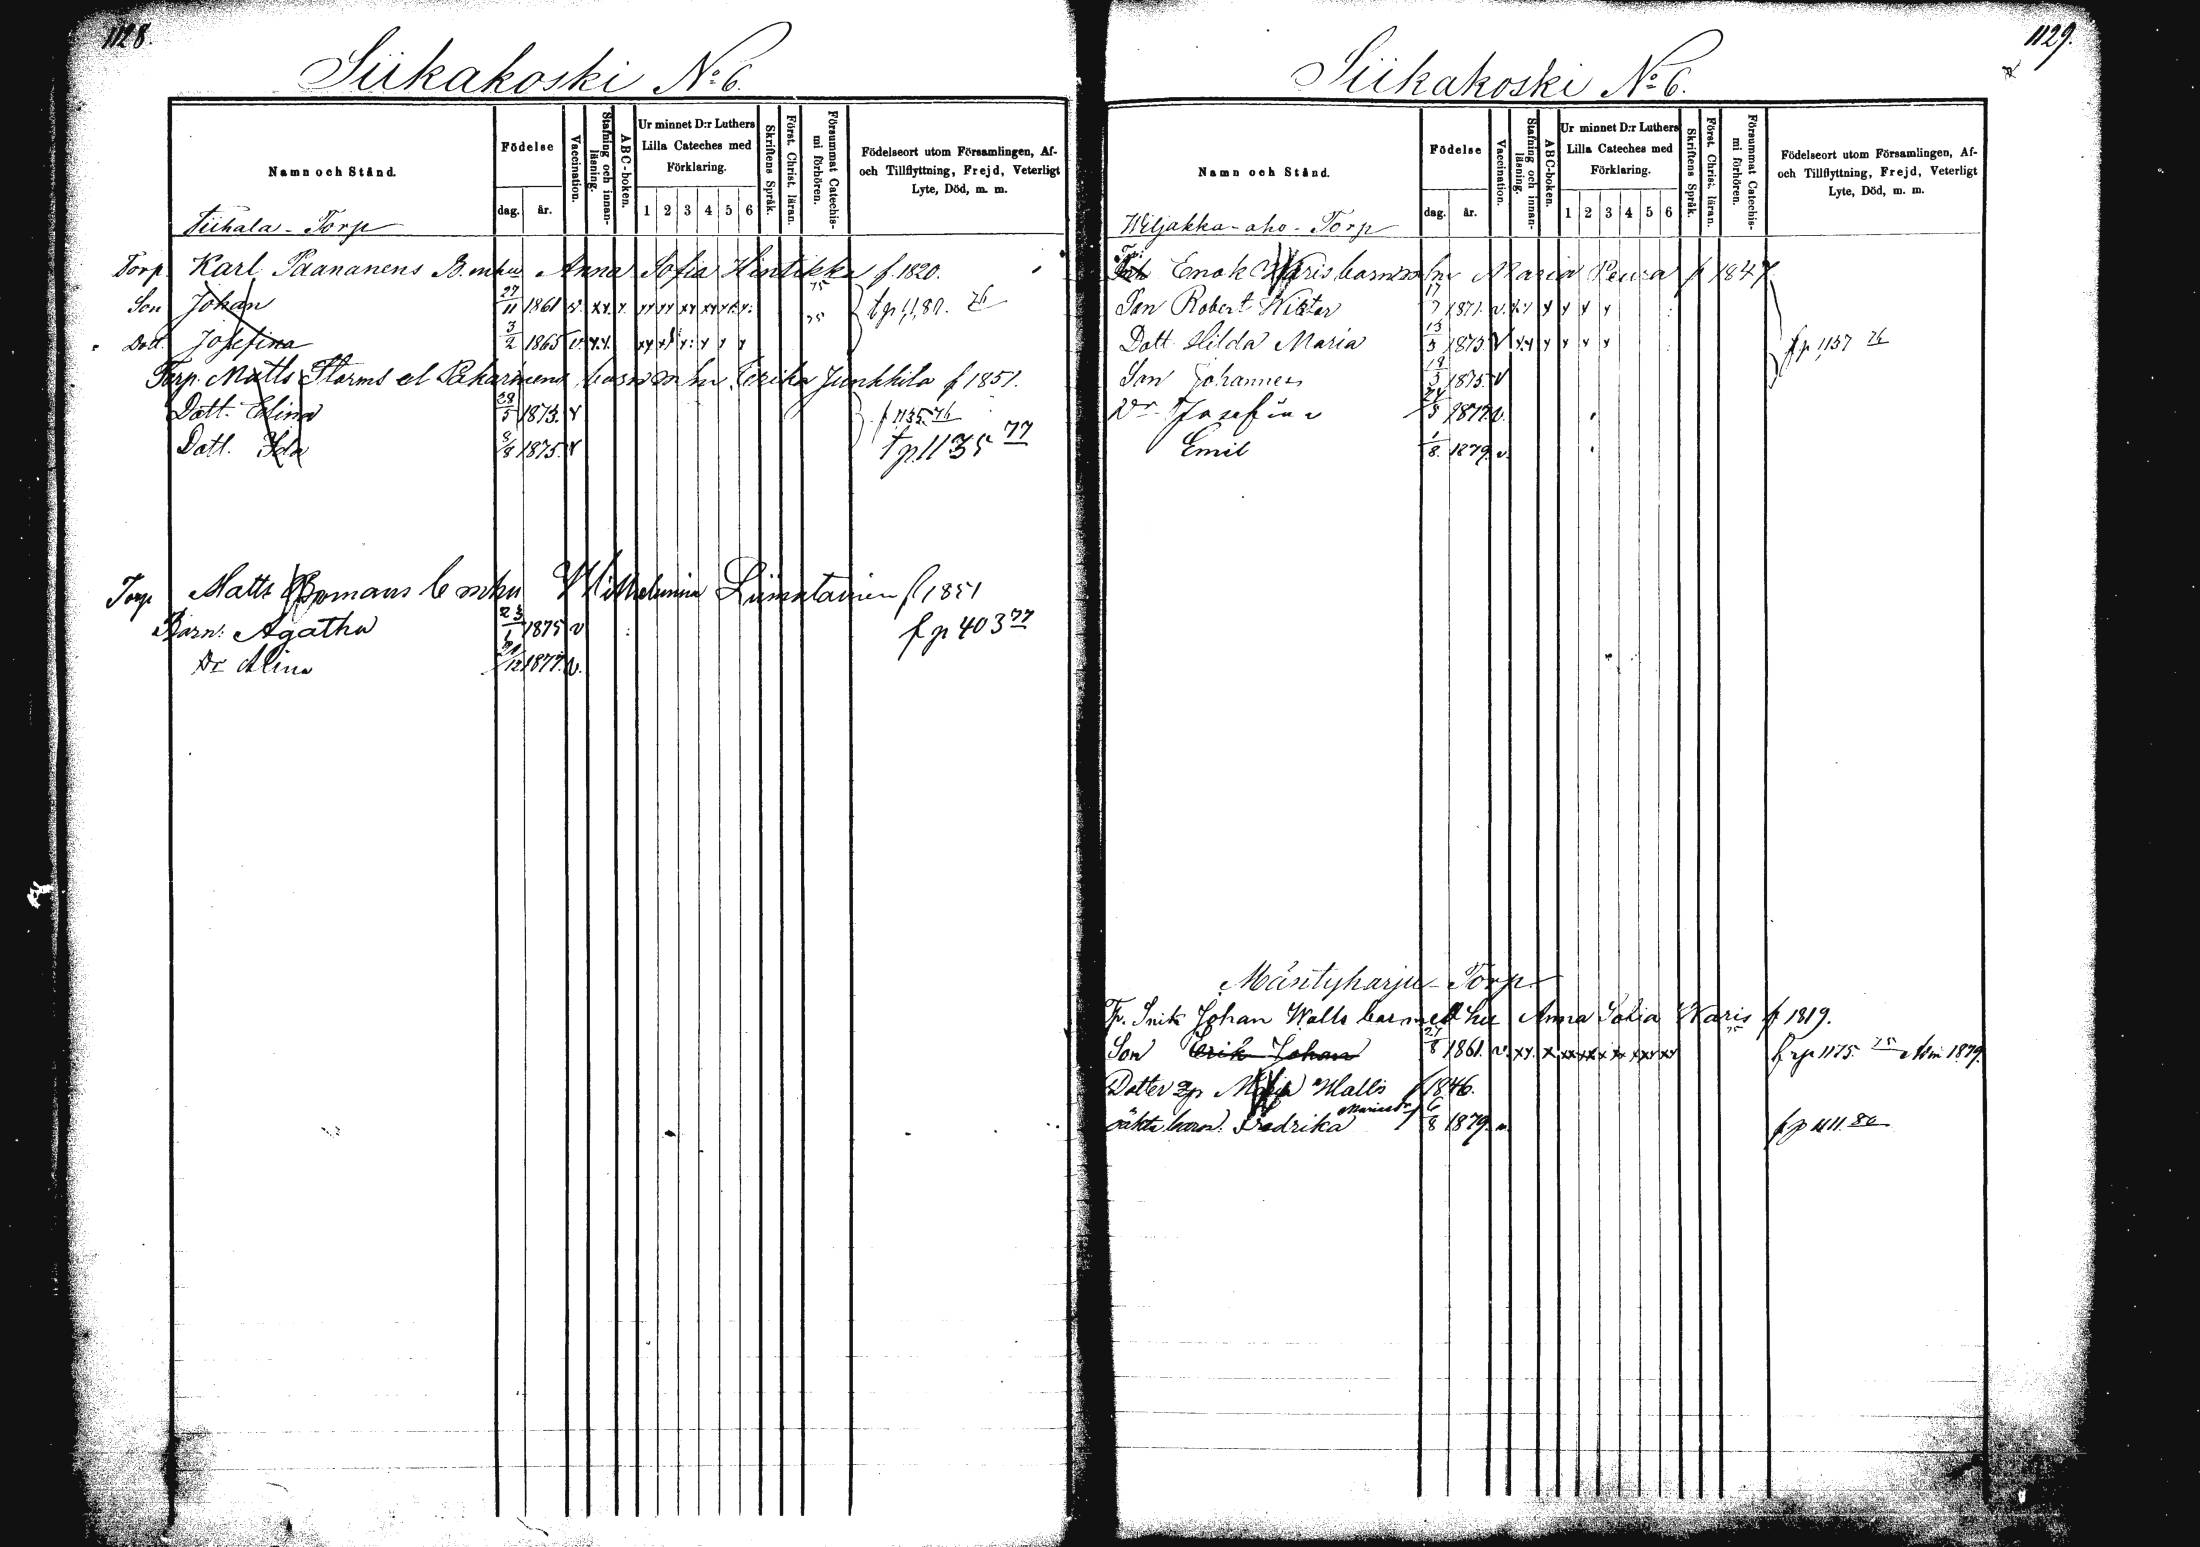 1128.
Siikakoski No 6.
Namn och Stånd.
Födelse
dag. år.
Vaccination.
Stafning och innanläsning.
ABC-boken.
Ur minnet D:r Luthers Lilla Cateches med Förklaring.
1 2 3 4 5 6
Skriftens Språk.
Först. Christ. läran.
Försummat Catechismi förhören.
Födelseort utom Församlingen, Af- och Tillflyttning, Frejd, Veterligt Lyte, Död, m. m.
Tiihala - Torp
Torp. Karl Paananens B. m hu Anna Sofia Hintikka f. 1820.
Son Johan 27/11 1861 v. 75 f p 1,180. 76
Dott. Josefina 3/2 1865 v. 75
Torp. Matts Storms el Pekarinens barn m hu Erika Junkkila f 1851.
Dott. Elina 28/5 1873. v f 1135 76
Dott. Ida 8/8 1875. v f p. 1135 77
Torp Matts Bomans b m hu Wilhelmina Liimatainen f 1851
Barn: Agatha 23/1 1875 v f p 403 77
Dr Alina 21/12 1877. v.
1129.
Siikakoski No 6.
Namn och Stånd.
Födelse
dag. år.
Vaccination.
Stafning och innanläsning.
ABC-boken.
Ur minnet D:r Luthers Lilla Cateches med Förklaring.
1 2 3 4 5 6
Skriftens Språk.
Först. Christ. läran.
Försummat Catechismi förhören.
Födelseort utom Församlingen, Af- och Tillflyttning, Frejd, Veterligt Lyte, Död, m. m.
Wiljakka-aho - Torp
Enok Waris barn m hu Maria Peura f 1847
Son Robert Wiktor 17/7 1871. v.
Dott Hilda Maria 13/3 1873 v f p 1,157 76
Son Johannes 19/5 1875. v
Dr Josefina 24/5 1877. v.
Emil 1/8. 1879. v.
Mäntyharju - Torp
Tp. Snik Johan Walls barn med hu Anna Sofia Waris f 1819.
Son Erik Johan 27/8 1861. v. 75 f. p 1175. 75 Adm 1879.
Dotter qp Maja Walls f 1846.
oäkta barn: Fredrika Mariasdr 6/8 1879. f p 1111. 80